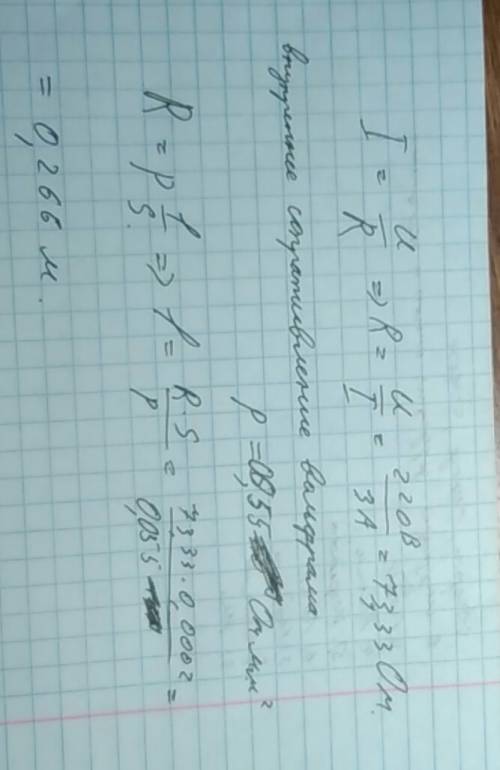 I = U/R => R = U/I = 220В/3А = 73,33 Ом.
внутреннее сопративление валфрама
ρ = 0,055 Ом мм²
R = ρ l/S. => l = R·S/ρ = 73,33·0,0002/0,055 =
= 0,266 м.